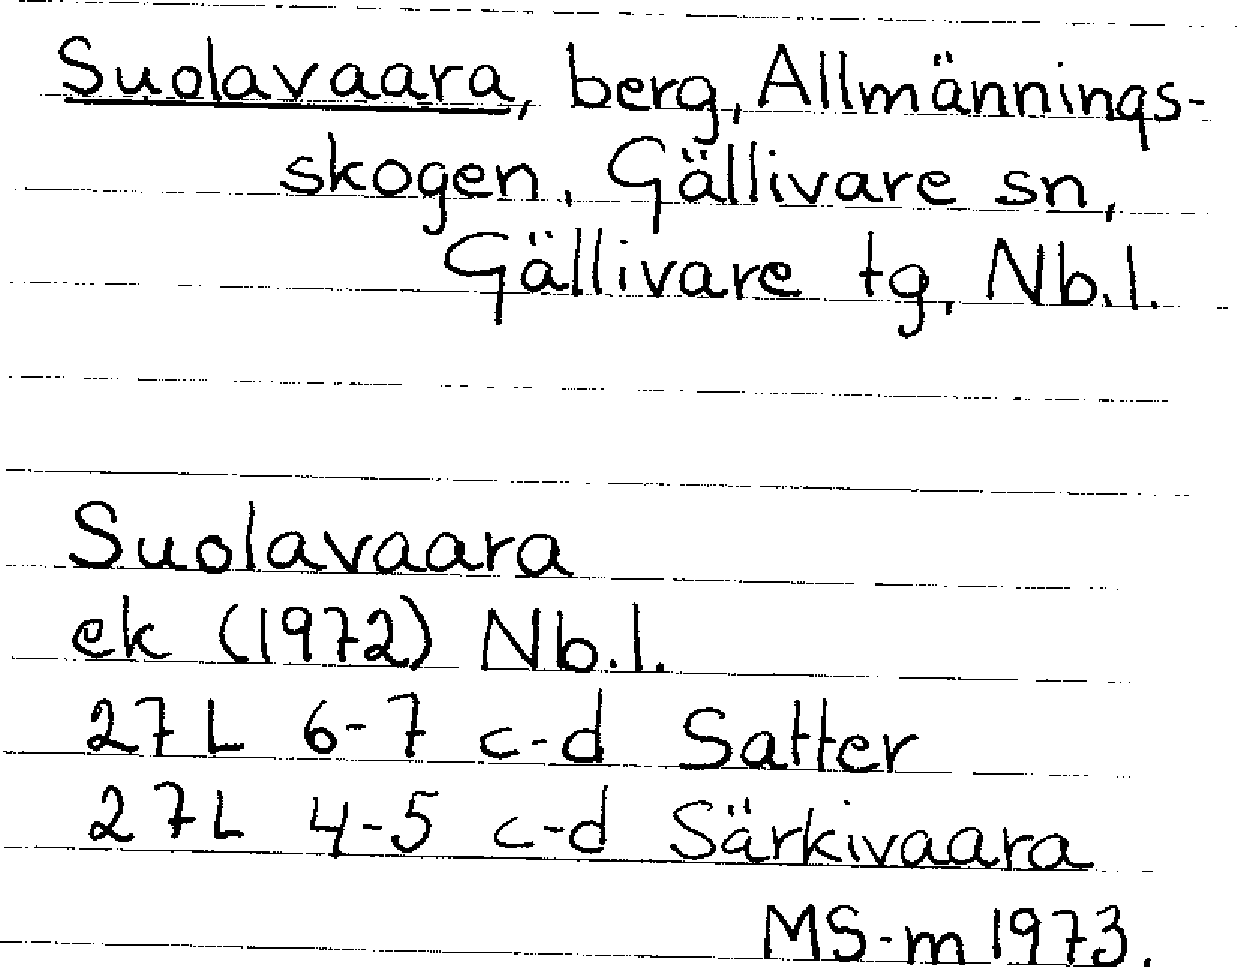 Suolavaara, berg, Allmännings-
skogen, Gällivare sn,
Gällivare tg, Nb.l.
Suolavaara
ek (1972) Nb.l.
27L 6-7 c-d Satter
27L 4-5 c-d Särkivaara
MS-m 1973.